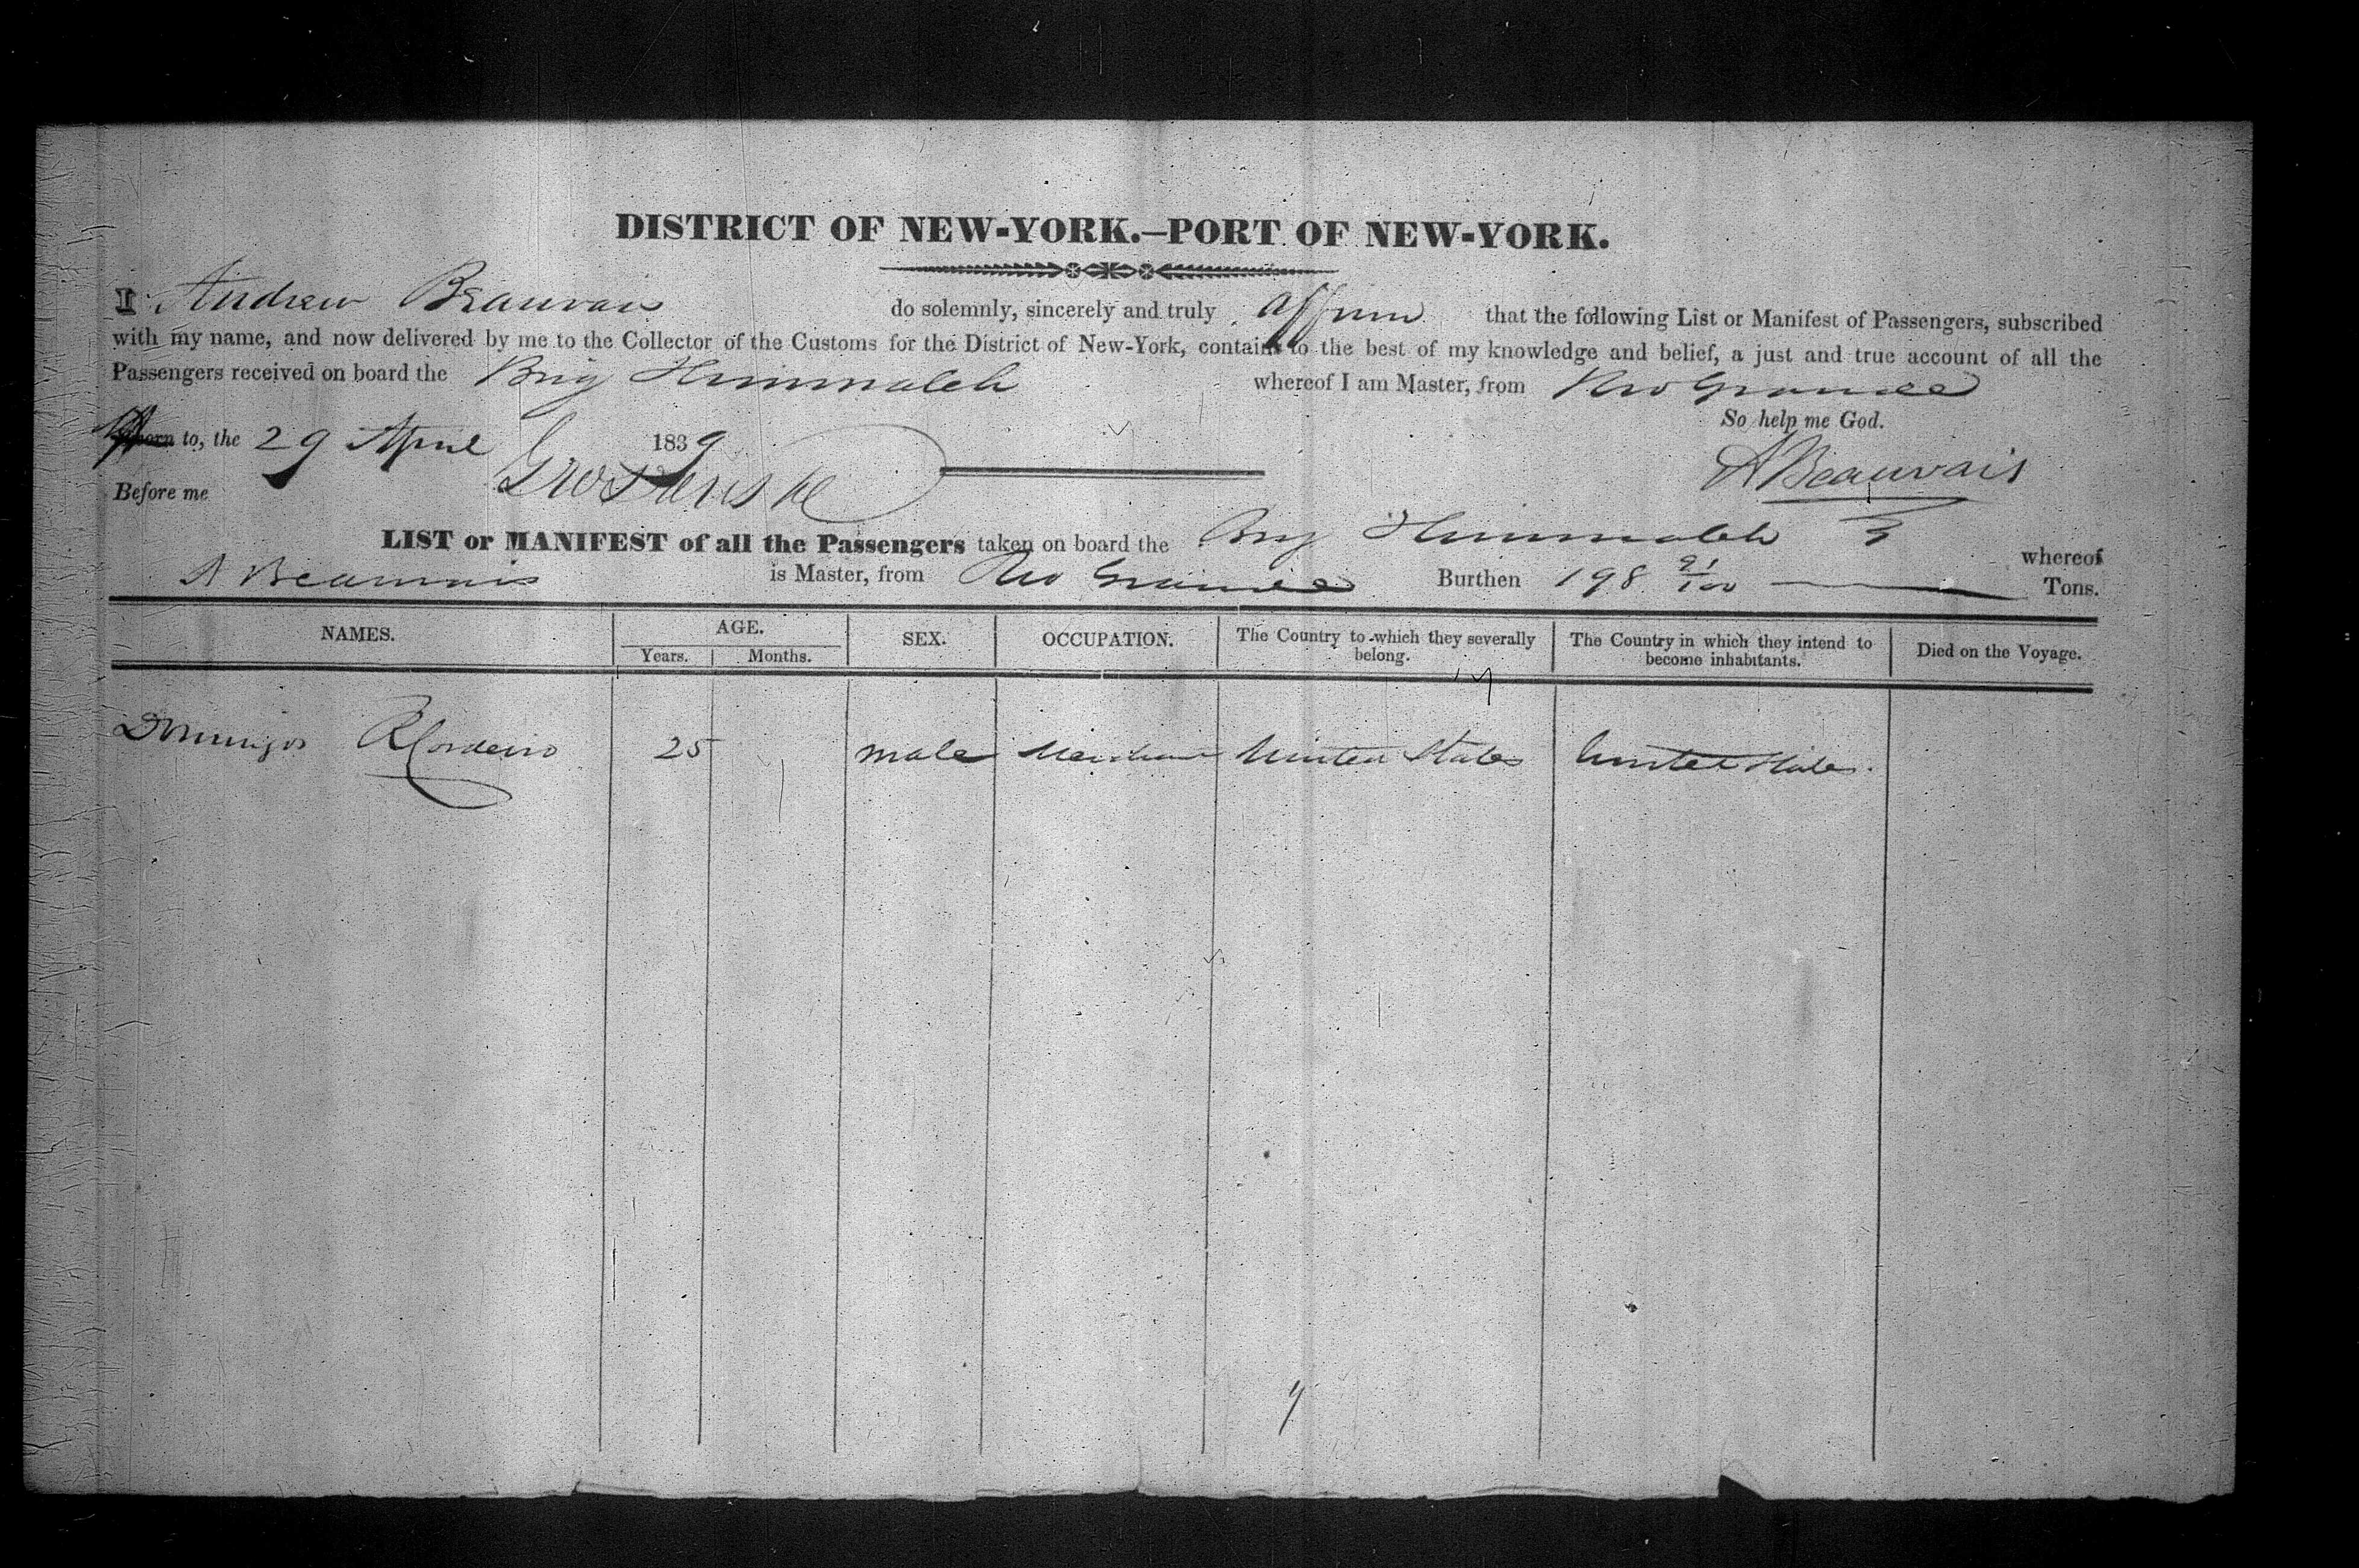 DISTRICT OF NEW-YORK.—PORT OF NEW-YORK.
I Andrew Beauvais do solemnly, sincerely and truly affirm that the following List or Manifest of Passengers, subscribed
with my name, and now delivered by me to the Collector of the Customs for the District of New-York, contains to the best of my knowledge and belief, a just and true account of all the
Passengers received on board the Brig Himmaleh whereof I am Master, from Rio Grande
So help me God.
to, the 29 April 1839
A Beauvais
Before me
LIST or MANIFEST of all the Passengers taken on board the Brig Himmaleh whereof
A Beauvais is Master, from Rio Grande Burthen 198 91/100 Tons.
NAMES. AGE. SEX. OCCUPATION. The Country to which they severally belong. The Country in which they intend to become inhabitants. Died on the Voyage.
Years. Months.
Domingos 25 male Merchant United States United States